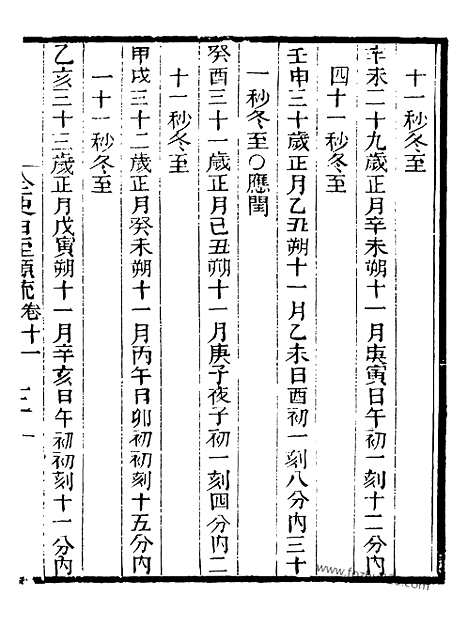 十一秒冬至
辛未二十九歲正月辛未朔十一月庚寅日午初一刻十二分內
四十一秒冬至
壬申三十歲正月乙丑朔十一月乙未日酉初一刻八分內三十
一秒冬至○應閏
癸酉三十一歲正月己丑朔十一月庚子夜子初一刻四分內二
十一秒冬至
甲戌三十二歲正月癸未朔十一月丙午日卯初初刻十五分內
一十一秒冬至
乙亥三十三歲正月戊寅朔十一月辛亥日午初初刻十一分內
全史日至源流卷十一